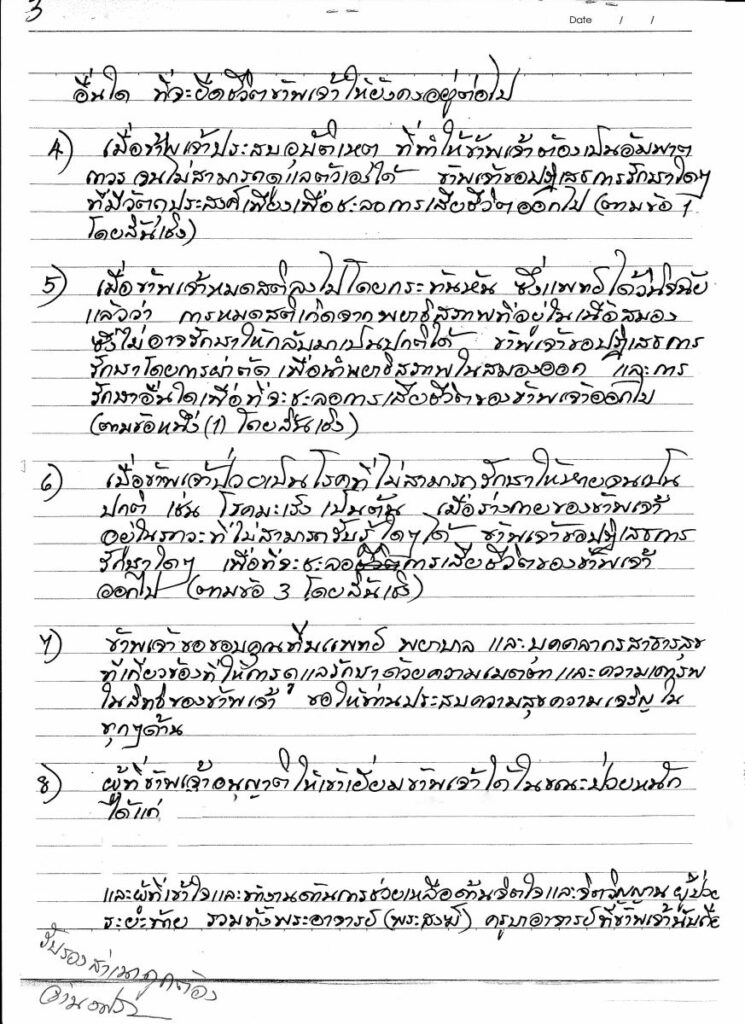 3
Date / /
อื่นใด ที่จะยืดชีวิตข้าพเจ้าให้ยังคงอยู่ต่อไป
4) เมื่อข้าพเจ้าประสบอุบัติเหตุ ที่ทำให้ข้าพเจ้าต้องเป็นอัมพาต
ถาวร จนไม่สามารถดูแลตัวเองได้ ข้าพเจ้าขอปฏิเสธการรักษาใดๆ
ที่มีวัตถุประสงค์เพียงเพื่อชะลอการเสียชีวิตออกไป (ตามข้อ 1
โดยสิ้นเชิง)
5) เมื่อข้าพเจ้าหมดสติลงไปโดยกระทันหัน ซึ่งแพทย์ได้วินิจฉัย
แล้วว่า การหมดสติเกิดจากพยาธิสภาพที่อยู่ในเนื้อสมอง
ซึ่งไม่อาจรักษาให้กลับมาเป็นปกติได้ ข้าพเจ้าขอปฏิเสธการ
รักษาโดยการผ่าตัด เพื่อนำพยาธิสภาพในสมองออก และการ
รักษาอื่นใดเพื่อที่จะชะลอการเสียชีวิตของข้าพเจ้าออกไป
(ตามข้อหนึ่ง (1) โดยสิ้นเชิง)
6) เมื่อข้าพเจ้าป่วยเป็นโรคที่ไม่สามารถรักษาให้หายจนเป็น
ปกติ เช่น โรคมะเร็ง เป็นต้น เมื่อร่างกายของข้าพเจ้า
อยู่ในภาวะที่ไม่สามารถรับรู้ใดๆได้ ข้าพเจ้าขอปฏิเสธการ
รักษาใดๆ เพื่อที่จะชะลอการเสียชีวิตของข้าพเจ้า
ออกไป (ตามข้อ 3 โดยสิ้นเชิง)
7) ข้าพเจ้าขอขอบคุณทีมแพทย์ พยาบาล และบุคคลากรสาธารสุข
ที่เกี่ยวข้องที่ให้การดูแลรักษาด้วยความเมตตา และความเคารพ
ในสิทธิ์ของข้าพเจ้า ขอให้ท่านประสบความสุขความเจริญใน
ทุกๆด้าน
8) ผู้ที่ข้าพเจ้าอนุญาตให้เข้าเยี่ยมข้าพเจ้าได้ในขณะป่วยหนัก
ได้แก่
และผู้ที่เข้าใจและทำงานด้านการช่วยเหลือด้านจิตใจและจิตวิญญาน ผู้ป่วย
ระยะท้าย รวมทั้งพระอาจารย์ (พระสงฆ์) ครูบาอาจารย์ที่ข้าพเจ้านับถือ
รับรองสำเนาถูกต้อง